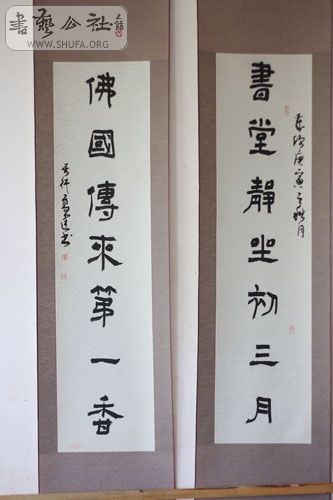 書藝公社
WWW.SHUFA.ORG
書堂靜坐初三月
歲次庚寅之秋月
佛國傳來第一香